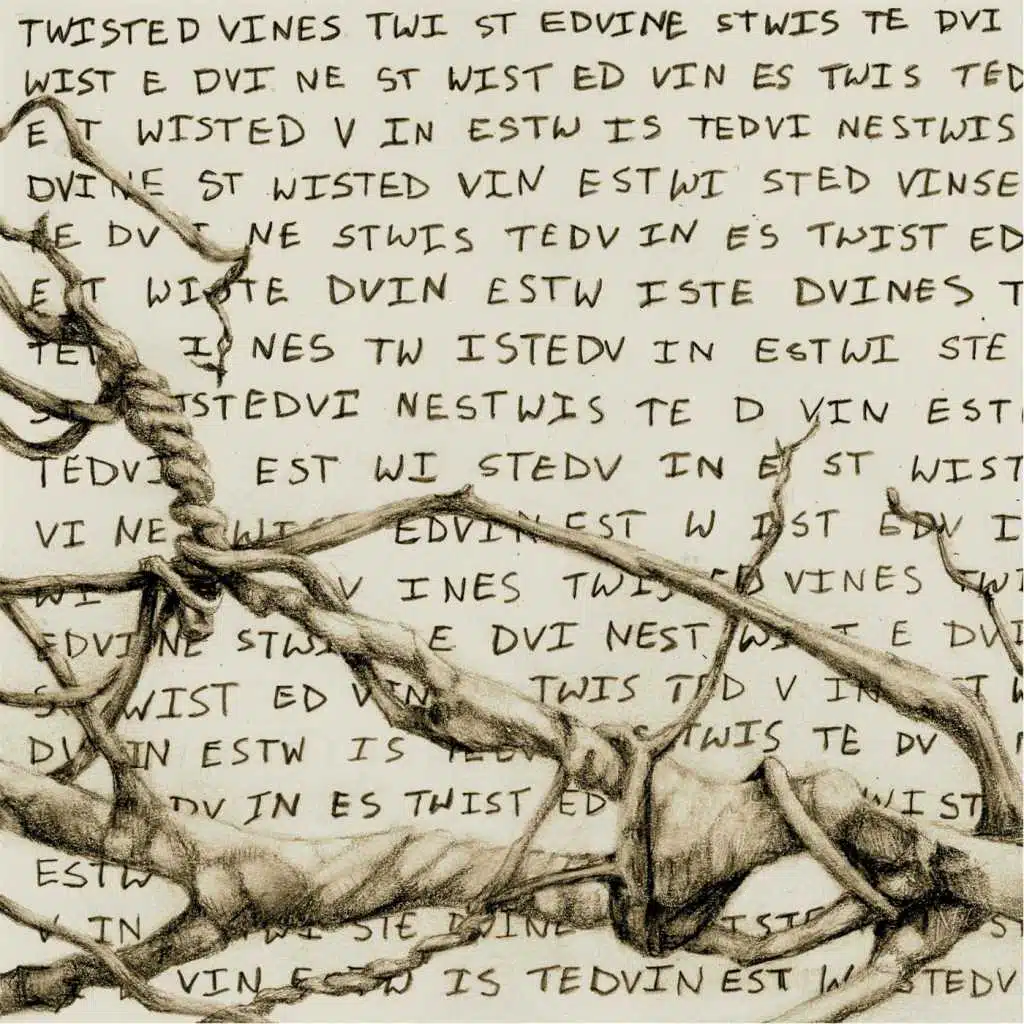 TWISTED VINES TWI ST EDVINE STWIS TE DVI
WIST E DVI NE ST WIST ED VIN ES TWIS TED
E T WISTED V IN ESTW IS TEDVI NESTWIS
DVINE ST WISTED VIN ESTWI STED VINSE
TE DV I NE STWIS TEDV IN ES TWIST ED
E T WISTE DVIN ESTW ISTE DVINES T
TEV I NES TW ISTEDV IN ESTWI STE
ISTEDVI NESTWIS TE D VIN EST
TEDVI EST WI STEDV IN E ST WIST
VI NE WI EDVIN EST W IST EDV I
WI V INES TWIS ED VINES TWI
EDVINE STWI E DVI NEST WI T E DVI
S WIST ED VIN TWIS T D V IN T W
DV IN ESTW IS TWIS TE DV
DV IN ES TWIST ED WIST
ESTW
V IN WI STE DVINE ISTE
VIN ES IS TEDVIN EST W STEDV